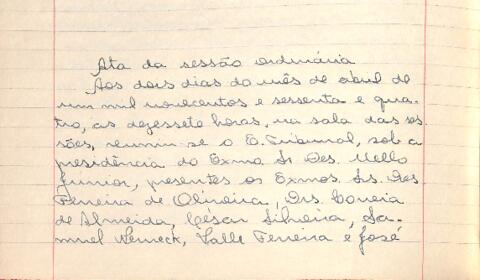 Ata da sessão ordinária
Aos dois dias do mês de abril de
um mil novecentos e sessenta e qua-
tro, às dezessete horas, na sala das ses-
sões, reuniu-se o E. Tribunal, sob a
presidência do Exmo Sr Des. Mello
Júnior, presentes os Exmos. Srs. Des
Ferreira de Oliveira, Drs. Correia
de Almeida, César Silveira, Sa-
muel Werneck, Valle Ferreira e José